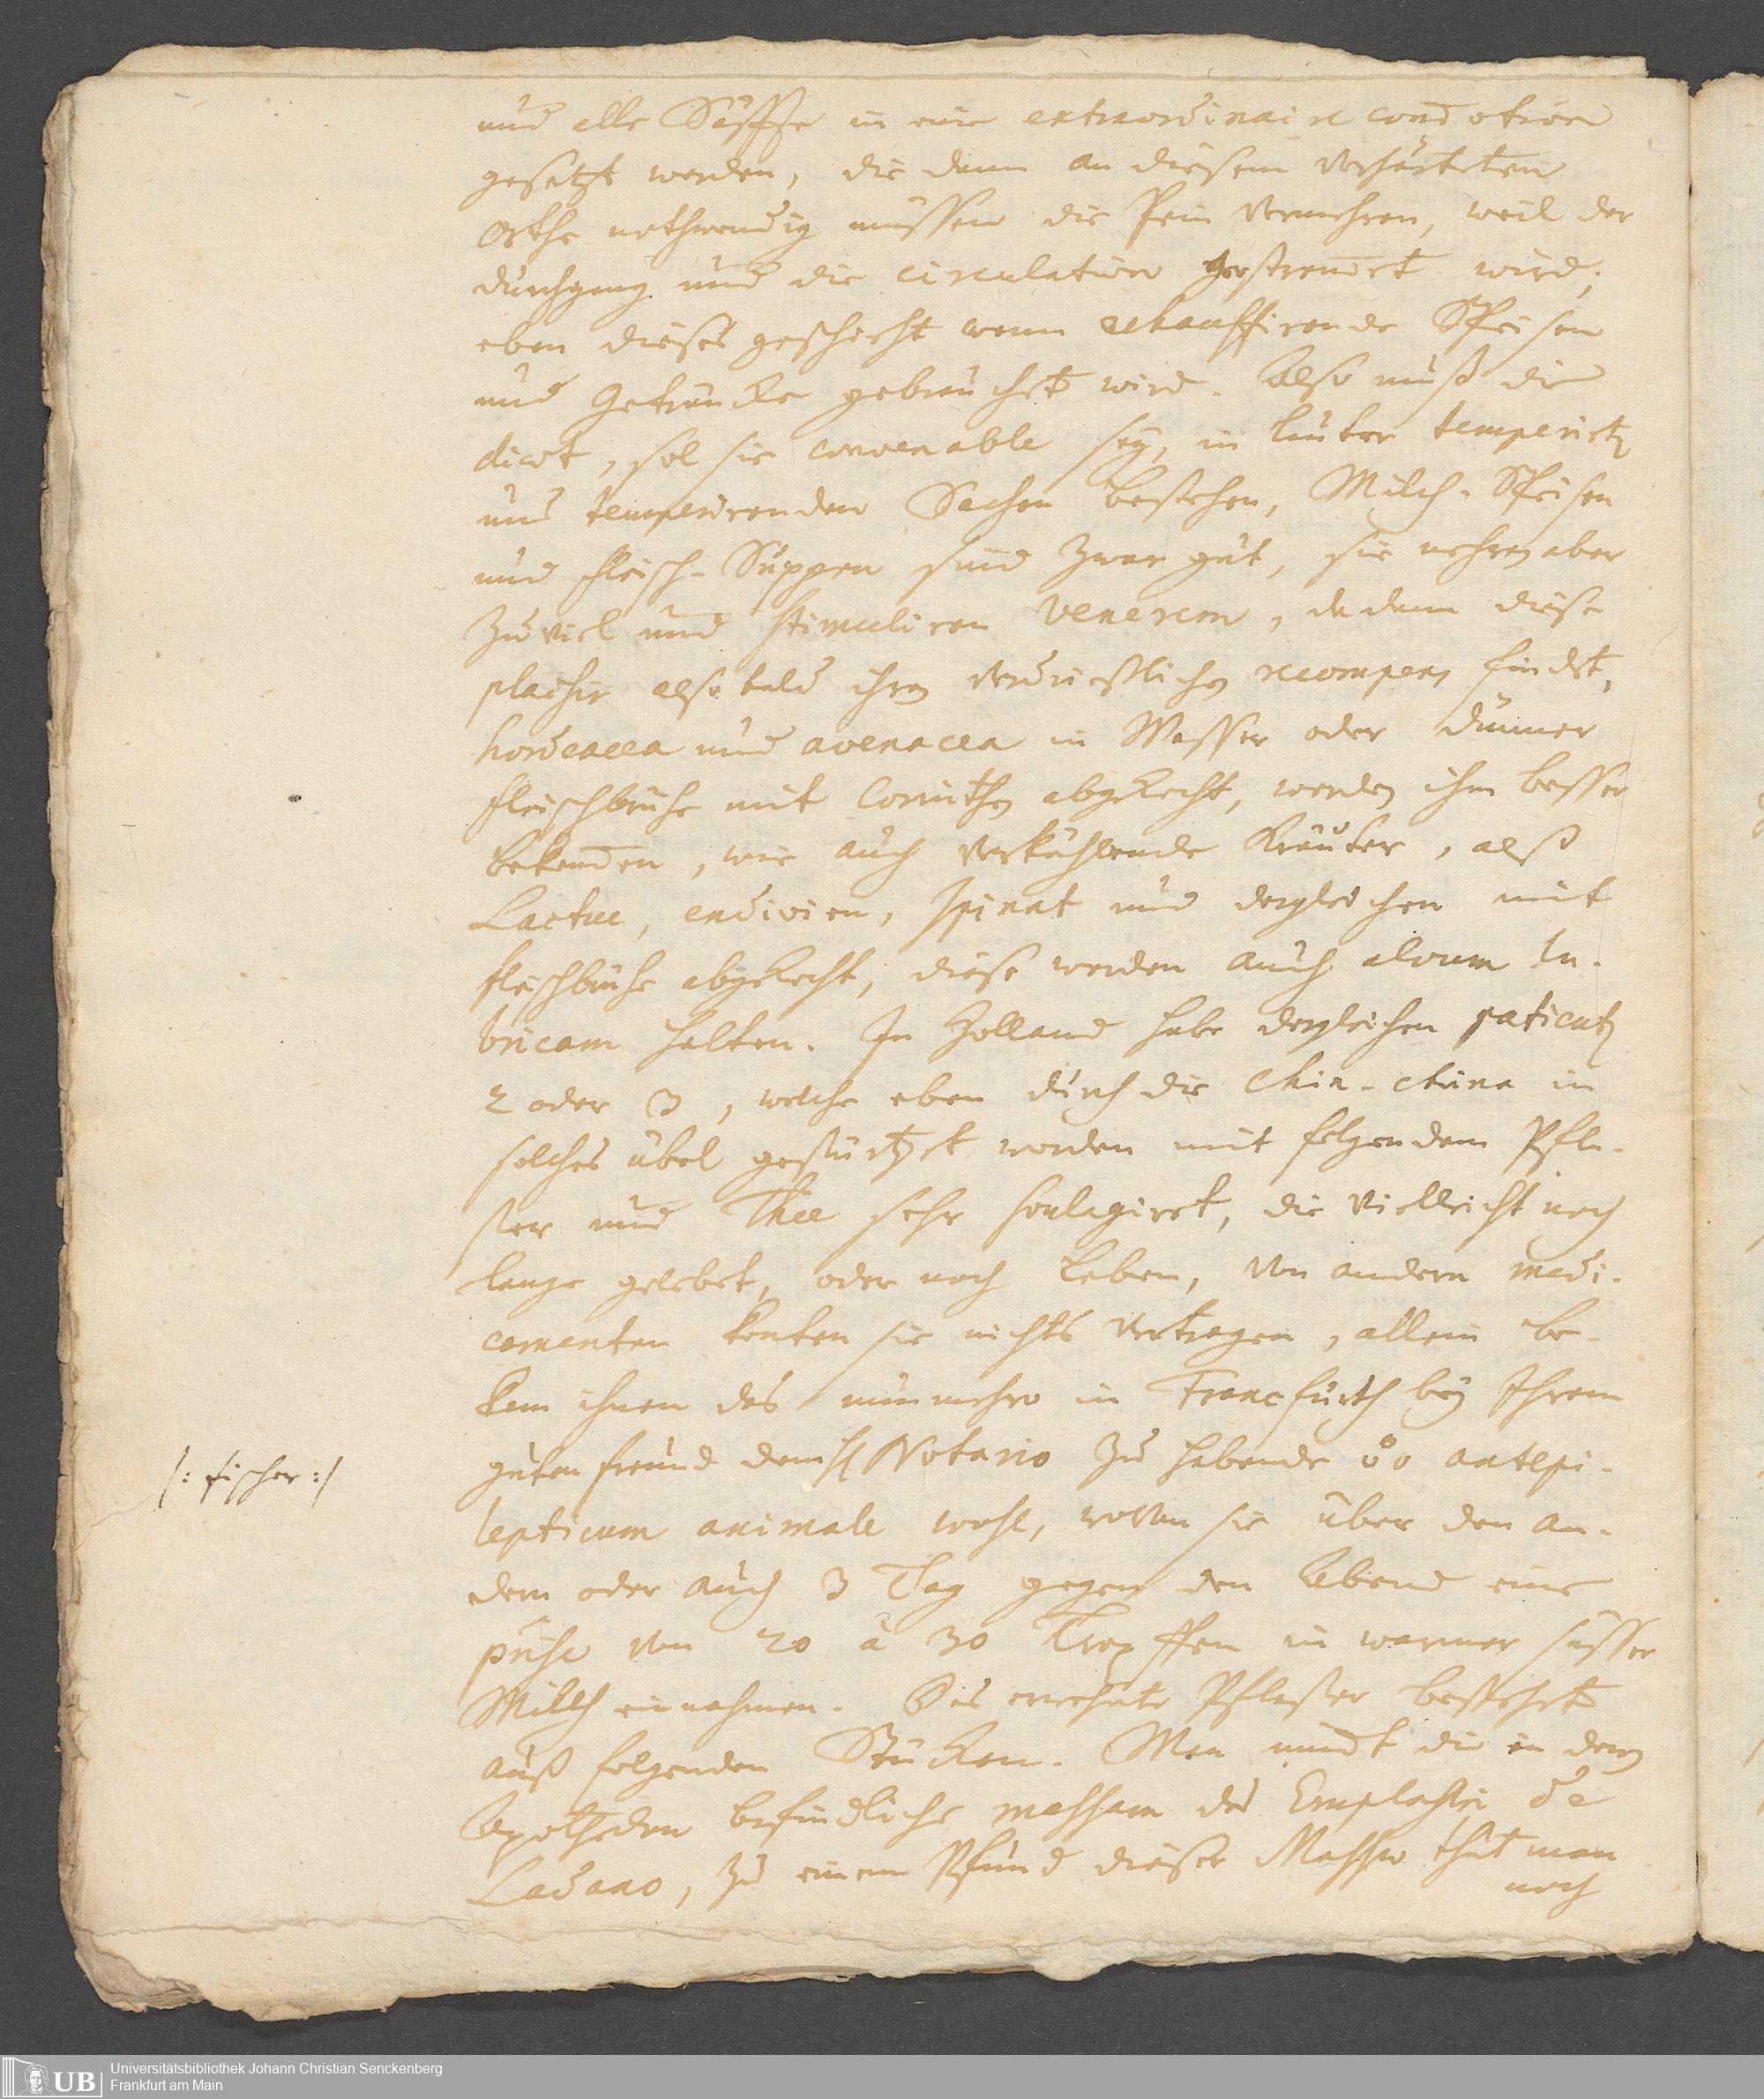 und alle Säffte in eine extraordinaire condotion
gesetzt werden, die dann an diesem verhärteten
Orthe nothwendig müssen die Pein vermehren, weil der
durchgang und die circulation gestremet wird,
eben dieses geschieht wenn echauffirende Speisen
und Geträncke gebrauchet wird. Also muß die
diaet, sol sie convenable sey, in lauter temperirtẽ
und temperirenden Sachen bestehen, Milch-Speisen
und fleisch-Suppen sind zwar gut, sie nehren aber
zu viel und stimuliren Venerem, da dann diese
plaisir also bald ihren verdrießlichen recompens findet,
hordeacea und avenacea in Wasser oder dünner
fleischbrühe mit Corinthen abgekocht, werden ihm besser
bekommen, wie auch verkühlende Kräuter, alß
Lactuc, endivien, spinat und dergleichen mit
fleischbrühe abgekocht, diese werden auch alvum lu-
bricam halten. In Holland habe dergleichen patienten
2 oder 3, welche eben durch die Chin-china in
solches übel gestürtzet worden mit folgendem Pfla-
ster und Thee sehr soulagiret, die vielleicht noch
lange gelebet, oder noch leben, von andern medi-
camenten konten sie nichts vertragen, allein be-
kam ihnen das nunmehro in Franckfurth bey Ihrem
guten freund dem H Notario zu habende antepi-
/: fischer :/
lepticum animale wohl, wovon sie über den an-
dern oder auch 3 Tag gegen den Abend eine
prise von 20 à 30 Tropffen in warmer süsser
Milch einnahmen. Das erwehnte Pflaster bestehet
auß folgenden Stücken. Man nimt die in denen
Apothecken befindliche massam des Emplastri de
Ladano, zu einem Pfund dieser Massae thut man
noch
Universitätsbibliothek Johann Christian Senckenberg
UB Frankfurt am Main